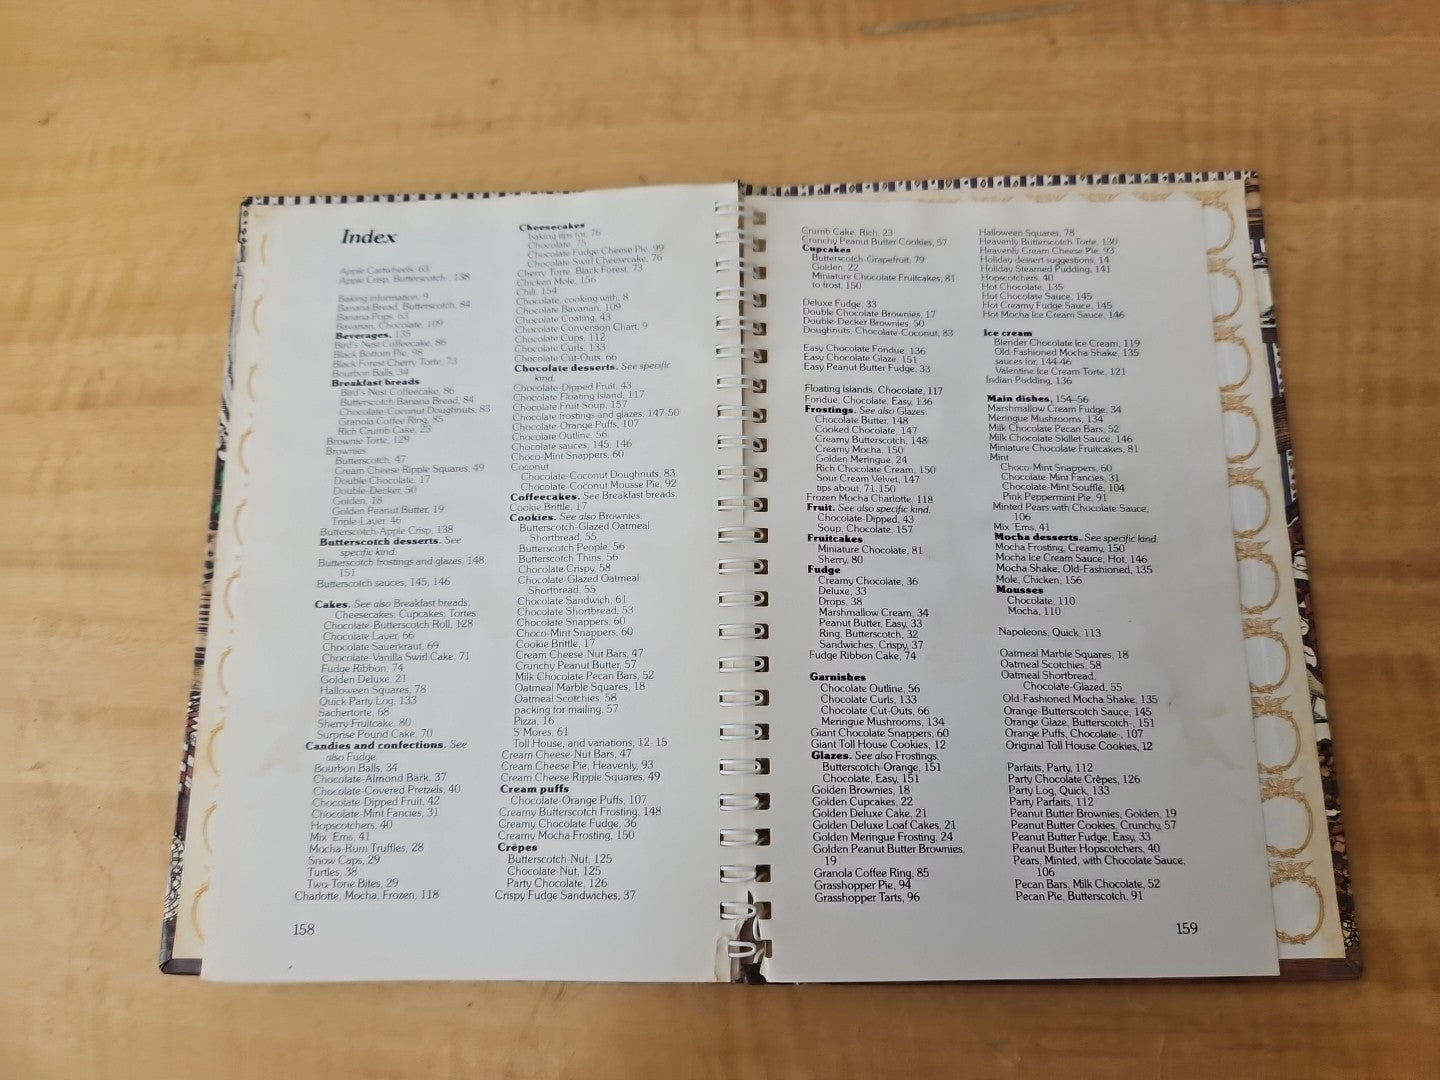 Index
Apple Cartwheels, 63
Apple Crisp, Butterscotch-, 138
Baking information, 9
Banana Bread, Butterscotch, 84
Banana Pops, 63
Bavarian, Chocolate, 109
Beverages, 135
Bird's Nest Coffeecake, 86
Black Bottom Pie, 98
Black Forest Cherry Torte, 73
Bourbon Balls, 34
Breakfast breads
Bird's Nest Coffeecake, 86
Butterscotch Banana Bread, 84
Chocolate-Coconut Doughnuts, 83
Granola Coffee Ring, 85
Rich Crumb Cake, 23
Brownie Torte, 129
Brownies
Butterscotch, 47
Cream Cheese Ripple Squares, 49
Double Chocolate, 17
Double-Decker, 50
Golden, 18
Golden Peanut Butter, 19
Triple-Layer, 46
Butterscotch-Apple Crisp, 138
Butterscotch desserts. See
specific kind.
Butterscotch frostings and glazes, 148,
151
Butterscotch sauces, 145, 146
Cakes. See also Breakfast breads;
Cheesecakes; Cupcakes; Tortes
Chocolate-Butterscotch Roll, 128
Chocolate Layer, 66
Chocolate Sauerkraut, 69
Chocolate-Vanilla Swirl Cake, 71
Fudge Ribbon, 74
Golden Deluxe, 21
Halloween Squares, 78
Quick Party Log, 133
Sachertorte, 68
Sherry Fruitcake, 80
Surprise Pound Cake, 70
Candies and confections. See
also Fudge
Bourbon Balls, 34
Chocolate-Almond Bark, 37
Chocolate-Covered Pretzels, 40
Chocolate-Dipped Fruit, 42
Chocolate-Mint Fancies, 31
Hopscotchers, 40
Mix 'Ems, 41
Mocha-Rum Truffles, 28
Snow Caps, 29
Turtles, 38
Two-Tone Bites, 29
Charlotte, Mocha, Frozen, 118
Cheesecakes
baking tips for, 76
Chocolate, 75
Chocolate Fudge Cheese Pie, 99
Chocolate Swirl Cheesecake, 76
Cherry Torte, Black Forest, 73
Chicken Mole, 156
Chili, 154
Chocolate, cooking with, 8
Chocolate Bavarian, 109
Chocolate Coating, 43
Chocolate Conversion Chart, 9
Chocolate Cups, 112
Chocolate Curls, 133
Chocolate Cut-Outs, 66
Chocolate desserts. See specific
kind.
Chocolate-Dipped Fruit, 43
Chocolate Floating Island, 117
Chocolate Fruit Soup, 157
Chocolate frostings and glazes, 147-50
Chocolate-Orange Puffs, 107
Chocolate Outline, 56
Chocolate sauces, 145, 146
Choco-Mint Snappers, 60
Coconut
Chocolate-Coconut Doughnuts, 83
Chocolate-Coconut Mousse Pie, 92
Coffeecakes. See Breakfast breads.
Cookie Brittle, 17
Cookies. See also Brownies.
Butterscotch-Glazed Oatmeal
Shortbread, 55
Butterscotch People, 56
Butterscotch Thins, 56
Chocolate Crispy, 58
Chocolate-Glazed Oatmeal
Shortbread, 55
Chocolate Sandwich, 61
Chocolate Shortbread, 53
Chocolate Snappers, 60
Choco-Mint Snappers, 60
Cookie Brittle, 17
Cream Cheese-Nut Bars, 47
Crunchy Peanut Butter, 57
Milk Chocolate Pecan Bars, 52
Oatmeal Marble Squares, 18
Oatmeal Scotchies, 58
packing for mailing, 57
Pizza, 16
S'Mores, 61
Toll House, and variations, 12-15
Cream Cheese-Nut Bars, 47
Cream Cheese Pie, Heavenly, 93
Cream Cheese Ripple Squares, 49
Cream puffs
Chocolate-Orange Puffs, 107
Creamy Butterscotch Frosting, 148
Creamy Chocolate Fudge, 36
Creamy Mocha Frosting, 150
Crêpes
Butterscotch-Nut, 125
Chocolate-Nut, 125
Party Chocolate, 126
Crispy Fudge Sandwiches, 37
158
Crumb Cake, Rich, 23
Crunchy Peanut Butter Cookies, 57
Cupcakes
Butterscotch-Grapefruit, 79
Golden, 22
Miniature Chocolate Fruitcakes, 81
to frost, 150
Deluxe Fudge, 33
Double Chocolate Brownies, 17
Double-Decker Brownies, 50
Doughnuts, Chocolate-Coconut, 83
Easy Chocolate Fondue, 136
Easy Chocolate Glaze, 151
Easy Peanut Butter Fudge, 33
Floating Islands, Chocolate, 117
Fondue, Chocolate, Easy, 136
Frostings. See also Glazes.
Chocolate Butter, 148
Cooked Chocolate, 147
Creamy Butterscotch, 148
Creamy Mocha, 150
Golden Meringue, 24
Rich Chocolate Cream, 150
Sour Cream Velvet, 147
tips about, 71, 150
Frozen Mocha Charlotte, 118
Fruit. See also specific kind.
Chocolate-Dipped, 43
Soup, Chocolate, 157
Fruitcakes
Miniature Chocolate, 81
Sherry, 80
Fudge
Creamy Chocolate, 36
Deluxe, 33
Drops, 38
Marshmallow Cream, 34
Peanut Butter, Easy, 33
Ring, Butterscotch, 32
Sandwiches, Crispy, 37
Fudge Ribbon Cake, 74
Garnishes
Chocolate Outline, 56
Chocolate Curls, 133
Chocolate Cut-Outs, 66
Meringue Mushrooms, 134
Giant Chocolate Snappers, 60
Giant Toll House Cookies, 12
Glazes. See also Frostings.
Butterscotch-Orange, 151
Chocolate, Easy, 151
Golden Brownies, 18
Golden Cupcakes, 22
Golden Deluxe Cake, 21
Golden Deluxe Loaf Cakes, 21
Golden Meringue Frosting, 24
Golden Peanut Butter Brownies,
19
Granola Coffee Ring, 85
Grasshopper Pie, 94
Grasshopper Tarts, 96
Halloween Squares, 78
Heavenly Butterscotch Torte, 130
Heavenly Cream Cheese Pie, 93
Holiday dessert suggestions, 14
Holiday Steamed Pudding, 141
Hopscotchers, 40
Hot Chocolate, 135
Hot Chocolate Sauce, 145
Hot Creamy Fudge Sauce, 145
Hot Mocha Ice Cream Sauce, 146
Ice cream
Blender Chocolate Ice Cream, 119
Old-Fashioned Mocha Shake, 135
sauces for, 144-46
Valentine Ice Cream Torte, 121
Indian Pudding, 136
Main dishes, 154-56
Marshmallow Cream Fudge, 34
Meringue Mushrooms, 134
Milk Chocolate Pecan Bars, 52
Milk Chocolate Skillet Sauce, 146
Miniature Chocolate Fruitcakes, 81
Mint
Choco-Mint Snappers, 60
Chocolate-Mint Fancies, 31
Chocolate-Mint Soufflé, 104
Pink Peppermint Pie, 91
Minted Pears with Chocolate Sauce,
106
Mix 'Ems, 41
Mocha desserts. See specific kind.
Mocha Frosting, Creamy, 150
Mocha Ice Cream Sauce, Hot, 146
Mocha Shake, Old-Fashioned, 135
Mole, Chicken, 156
Mousses
Chocolate, 110
Mocha, 110
Napoleons, Quick, 113
Oatmeal Marble Squares, 18
Oatmeal Scotchies, 58
Oatmeal Shortbread,
Chocolate-Glazed, 55
Old-Fashioned Mocha Shake, 135
Orange-Butterscotch Sauce, 145
Orange Glaze, Butterscotch-, 151
Orange Puffs, Chocolate-, 107
Original Toll House Cookies, 12
Parfaits, Party, 112
Party Chocolate Crêpes, 126
Party Log, Quick, 133
Party Parfaits, 112
Peanut Butter Brownies, Golden, 19
Peanut Butter Cookies, Crunchy, 57
Peanut Butter Fudge, Easy, 33
Peanut Butter Hopscotchers, 40
Pears, Minted, with Chocolate Sauce,
106
Pecan Bars, Milk Chocolate, 52
Pecan Pie, Butterscotch, 91
159